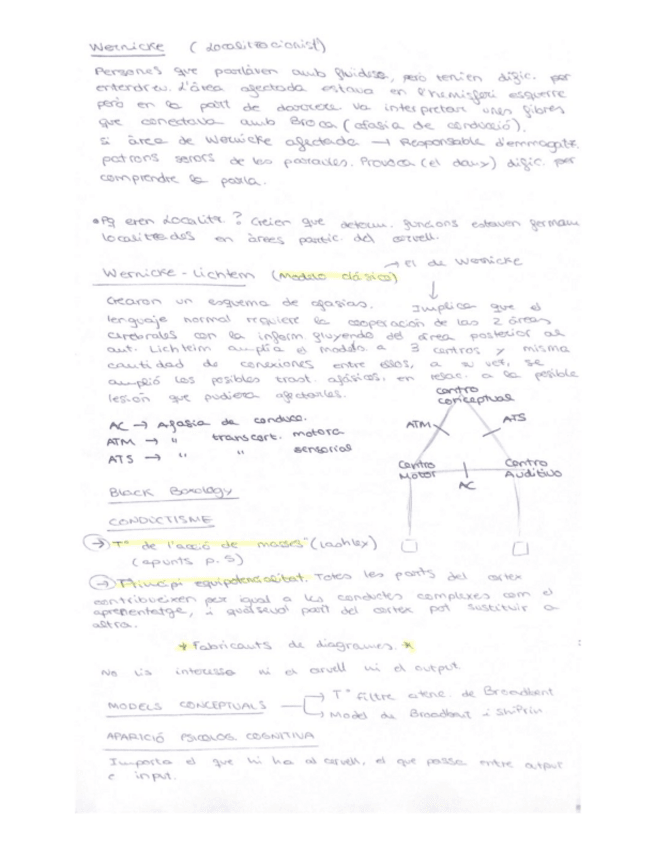 Wernicke ( Localitzacionist)
Persones que parlàven amb fluidesa, però tenien dific. per
entendreu. L'àrea afectada estava en l'hemisferi esquerre
però en la part de darrere va interpretar unes fibres
que conectava amb Broca (afasia de conducció).
Si àrea de Wernicke afectada → Responsable d'emmagatz.
patrons sensors de les paraules. Provoca (el dany) dific. per
comprendre la parla.
• Pq eren Localitz? Creien que determ. funcions estaven
localitzades en àrees partic. del cervell.
→ el de Wernicke
Wernicke - Lichteim (Modelo clásico)
Crearon un esquema de afasias. Implica que el
lenguaje normal requiere la cooperación de las 2 áreas
cerebrales con la inform. fluyendo del área posterior al
ant. Lichteim amplía el modelo a 3 centros y misma
cantidad de conexiones entre ellos, a su vez, se
amplió los posibles trast. afásicos, en relac. a la posible
lesión que pudiera afectarles.
Centro
conceptual
AC → Afasia de conducc.
ATM → " transcort. motora
ATS → " " sensorial
ATM
ATS
Centro
Motor
Centro
Auditivo
AC
Black Boxology
CONDUCTISME
→ Tª de l'acció de masses" (Lashley)
(apunts p. 5)
→ Principi equipotencialitat. Totes les parts del cortex
contribueixen per igual a les conductes complexes com el
aprenentatge, i qualsevol part del cortex pot sustituir a
altra.
* Fabricants de diagrames. *
No lis interessa ni el cervell ni el output
MODELS CONCEPTUALS → Tª Filtre atenc. de Broadbent
→ Model de Broadbent i Shifrin
APARICIÓ PSICOLOG COGNITIVA
Importa el que hi ha al cervell, el que passa entre output
e input.